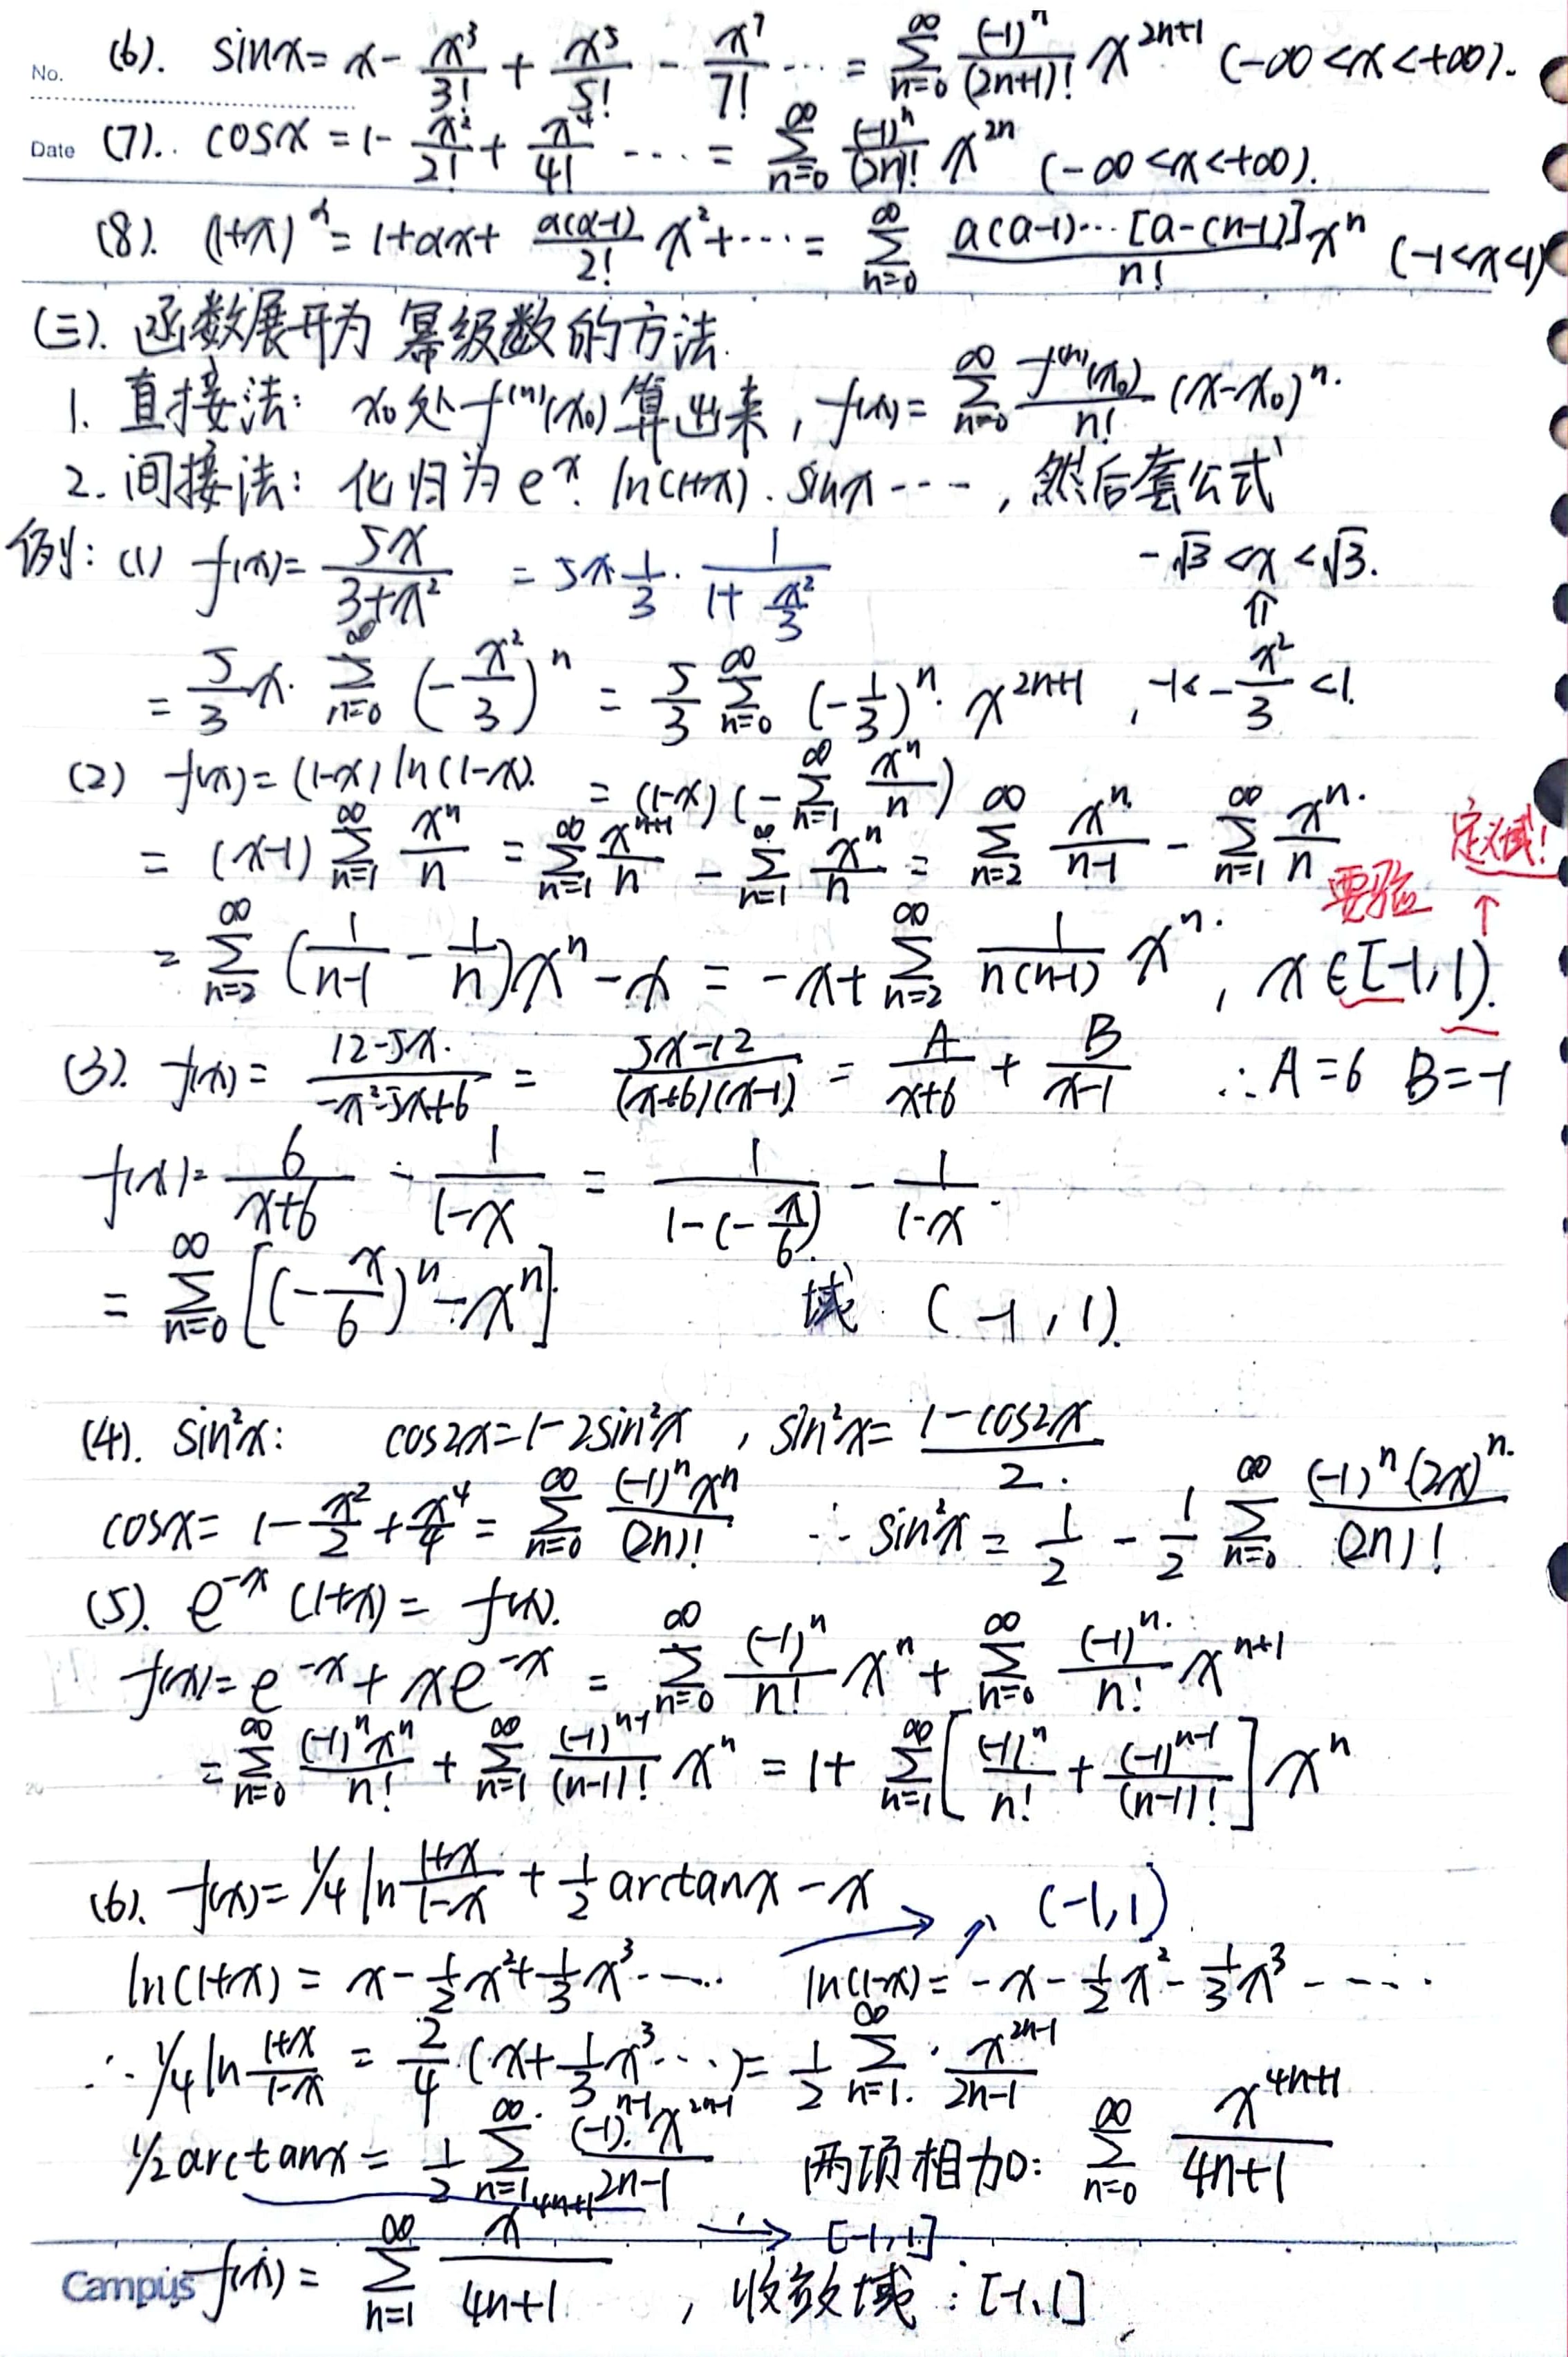 No. (6). sinx = x - x³/3! + x⁵/5! - x⁷/7! ⋯ = ∑_{n=0}^{∞} (-1)ⁿ/(2n+1)! x^{2n+1} (-∞<x<+∞).
Date (7).. cosx = 1 - x²/2! + x⁴/4! ⋯ = ∑_{n=0}^{∞} (-1)ⁿ/(2n)! x^{2n} (-∞<x<+∞).
(8). (1+x)^α = 1+αx+ α(α-1)/2! x² + ⋯ = ∑_{n=0}^{∞} α(α-1)⋯[α-(n-1)]/n! xⁿ (-1<x<1)
(三). 函数展开为幂级数的方法.
1. 直接法: x₀处f⁽ⁿ⁾(x₀)算出来, f(x) = ∑_{n=0}^{∞} f⁽ⁿ⁾(x₀)/n! (x-x₀)ⁿ.
2. 间接法: 化归为eˣ. ln(1+x). sinx ---, 然后套公式
例: (1) f(x) = 5x/(3+x²) = 5x·1/3· 1/(1+x²/3) -√3<x<√3.
⇑
= 5/3 x· ∑_{n=0}^{∞} (-x²/3)ⁿ = 5/3 ∑_{n=0}^{∞} (-1/3)ⁿ· x^{2n+1}, -1<-x²/3<1.
(2) f(x) = (1-x)ln(1-x). = (1-x)(-∑_{n=1}^{∞} xⁿ/n)
= (x-1)∑_{n=1}^{∞} xⁿ/n = ∑_{n=1}^{∞} x^{n+1}/n - ∑_{n=1}^{∞} xⁿ/n = ∑_{n=2}^{∞} xⁿ/(n-1) - ∑_{n=1}^{∞} xⁿ/n 定义域!
要验 ↑
= ∑_{n=2}^{∞} (1/(n-1) - 1/n)xⁿ - x = -x+∑_{n=2}^{∞} 1/(n(n-1)) xⁿ, x∈[-1,1).
(3). f(x) = (12-5x)/(-x²-5x+6) = (5x-12)/((x+6)(x-1)) = A/(x+6) + B/(x-1) ∴ A=6 B=-1
f(x) = 6/(x+6) - 1/(1-x) = 1/(1-(-x/6)) - 1/(1-x).
= ∑_{n=0}^{∞} [(-x/6)ⁿ - xⁿ]. 域 (-1, 1).
(4). sin²x: cos2x=1-2sin²x, sin²x= (1-cos2x)/2.
cosx= 1 - x²/2 + x⁴/4 = ∑_{n=0}^{∞} (-1)ⁿxⁿ/(2n)! ∴ sin²x = 1/2 - 1/2 ∑_{n=0}^{∞} (-1)ⁿ·(2x)ⁿ/(2n)!
(5). e^{-x}(1+x) = f(x).
f(x) = e^{-x} + xe^{-x} = ∑_{n=0}^{∞} (-1)ⁿ/n! xⁿ + ∑_{n=0}^{∞} (-1)ⁿ/n! x^{n+1}
= ∑_{n=0}^{∞} (-1)ⁿxⁿ/n! + ∑_{n=1}^{∞} (-1)^{n-1}/(n-1)! xⁿ = 1+ ∑_{n=1}^{∞} [(-1)ⁿ/n! + (-1)^{n-1}/(n-1)!] xⁿ
(6). f(x) = 1/4 ln (1+x)/(1-x) + 1/2 arctanx - x → (-1,1)
ln(1+x) = x - 1/2x² + 1/3x³ -⋯ ln(1-x) = -x - 1/2x² - 1/3x³ ----
∴ 1/4 ln (1+x)/(1-x) = 2/4 (x+1/3x³⋯) = 1/2 ∑_{n=1}^{∞} x^{2n-1}/(2n-1)
1/2 arctanx = 1/2 ∑_{n=1}^{∞} (-1)^{n-1}·x^{2n-1}/(2n-1) 两项相加: ∑_{n=0}^{∞} x^{4n+1}/(4n+1)
→ [-1,1]
Campus f(x) = ∑_{n=1}^{∞} x^{4n+1}/(4n+1), 收敛域: [-1,1]